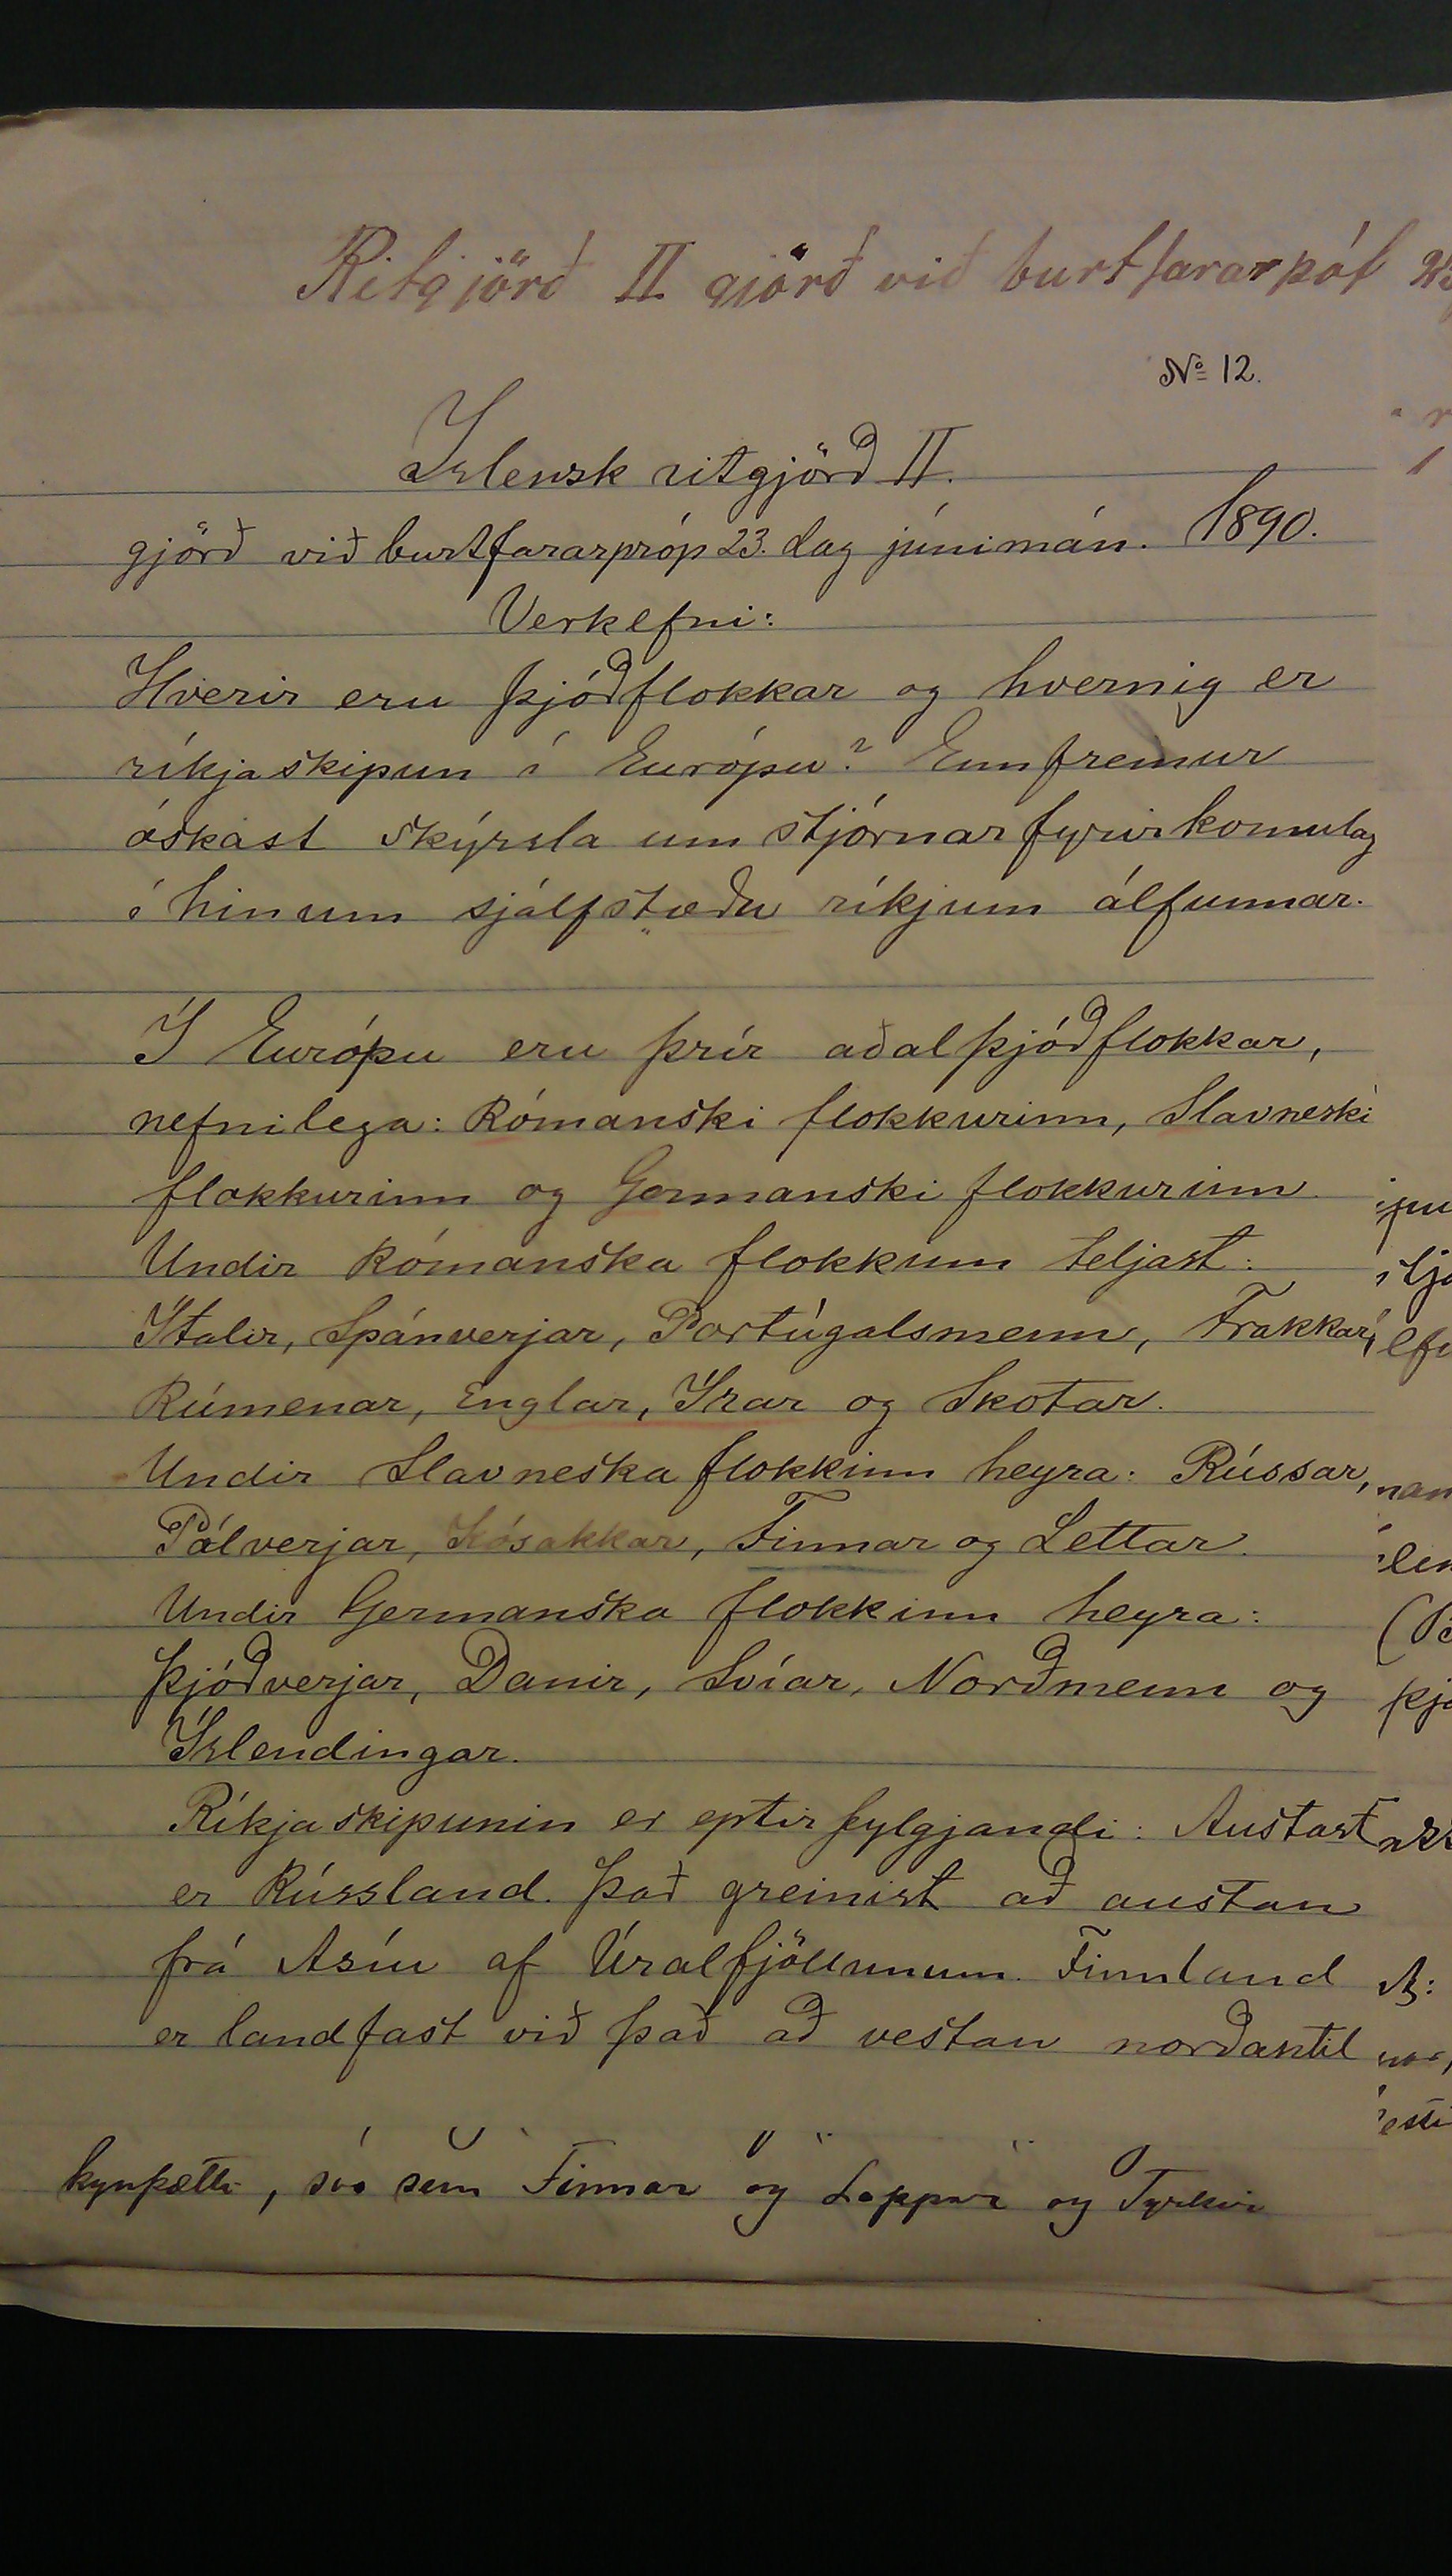 Ritgjörð II gjörð við burtfararpóf
No 12.
Íslensk ritgjörð II.
gjörð við burtfararpróp 23. dag júnímán. 1890.
Verkefni:
Hverir eru þjóðflokkar og hvernig er
ríkjaskipun í Európu? Ennfremur
óskast skýrsla um stjórnarfyrirkomulag
í hinum sjálfstæðu ríkjum álfunnar.
Í Európu eru þrír aðalþjóðflokkar,
nefnilega: Rómanski flokkurinn, Slavneski
flokkurinn og Germanski flokkurinn
Undir Rómanska flokkum teljast:
Ítalir, Spánverjar, Portúgalsmenn, Frakkar,
Rúmenar, Englar, Írar og Skotar.
Undir Slavneska flokkinn heyra: Rússar,
Pólverjar, Kósakkar, Finnar og Lettar.
Undir Germanska flokkinn heyra:
Þjóðverjar, Danir, Svíar, Norðmenn og
Íslendingar.
Ríkjaskipunin er eptirfylgjandi: Austast
er Rússland. Það greinist að austan
frá Asíu af Úralfjöllunum. Finnland
er landfast við það að vestan norðantil
kynþætti, svo sem Finnar og Lappar og Tyrkir